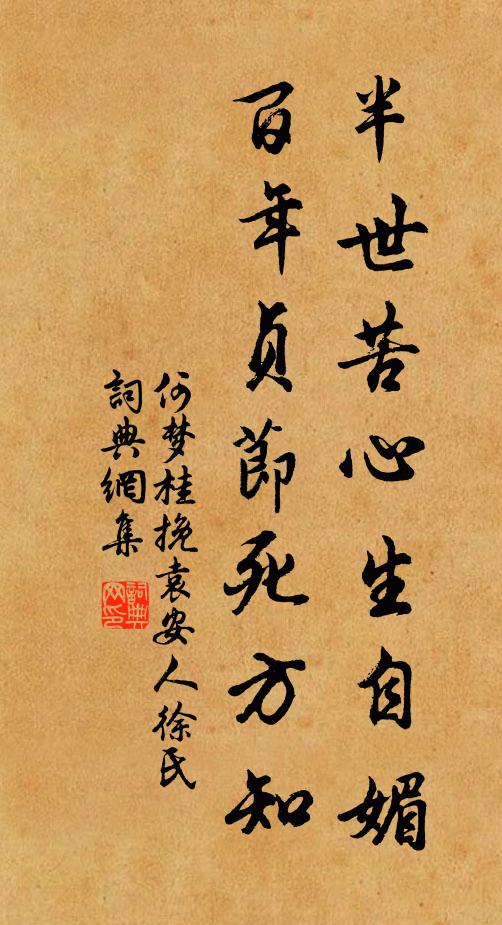 半世苦心生自媚
百年貞節死方知
何梦桂挽袁安人徐氏
詞典網集
詞典網印